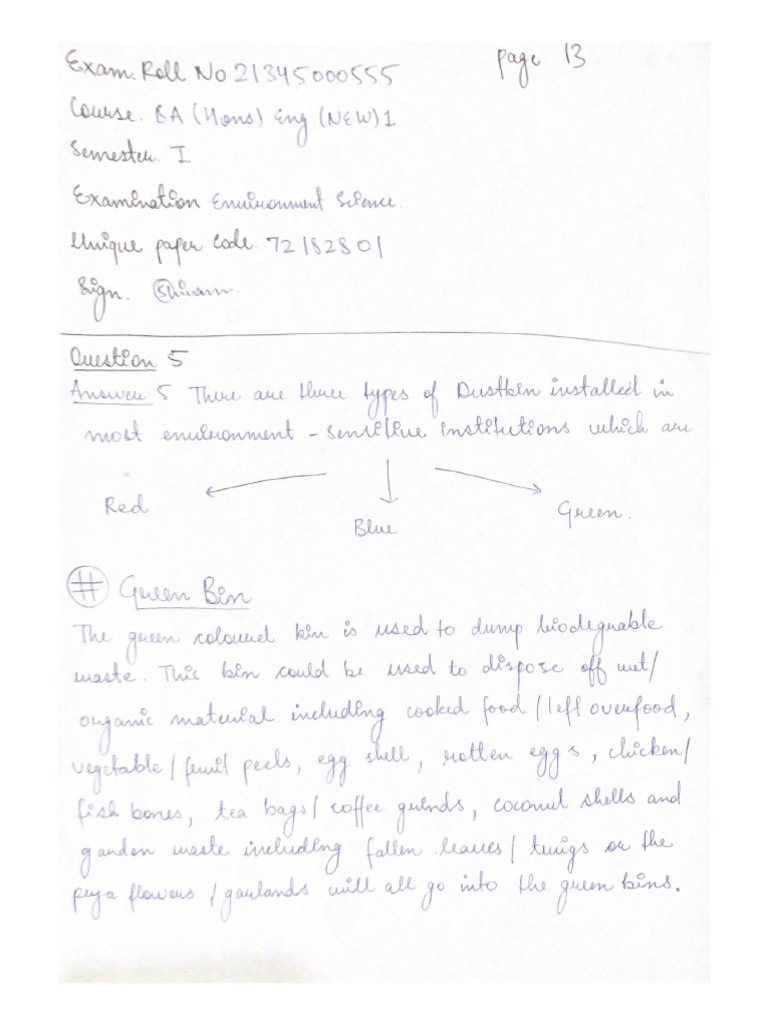 Exam. Roll No 21345000555
page 13
Course. BA (Hons) Eng (NEW) 1
Semester. I
Examination Environment Science.
Unique paper code. 72182801
Sign. Shivam
Question 5
Answer 5 There are three types of Dustbin installed in
most environment - sensitive institutions which are
Red
Blue
Green.
# Green Bin
The green coloured bin is used to dump biodegrable
waste. This bin could be used to dispose off wet/
organic material including cooked food / left overfood,
vegetable / fruit peels, egg shell, rotten eggs, chicken/
fish bones, tea bags/ coffee grinds, coconut shells and
garden waste including fallen leaves / twigs or the
puja flowers / garlands will all go into the green bins.